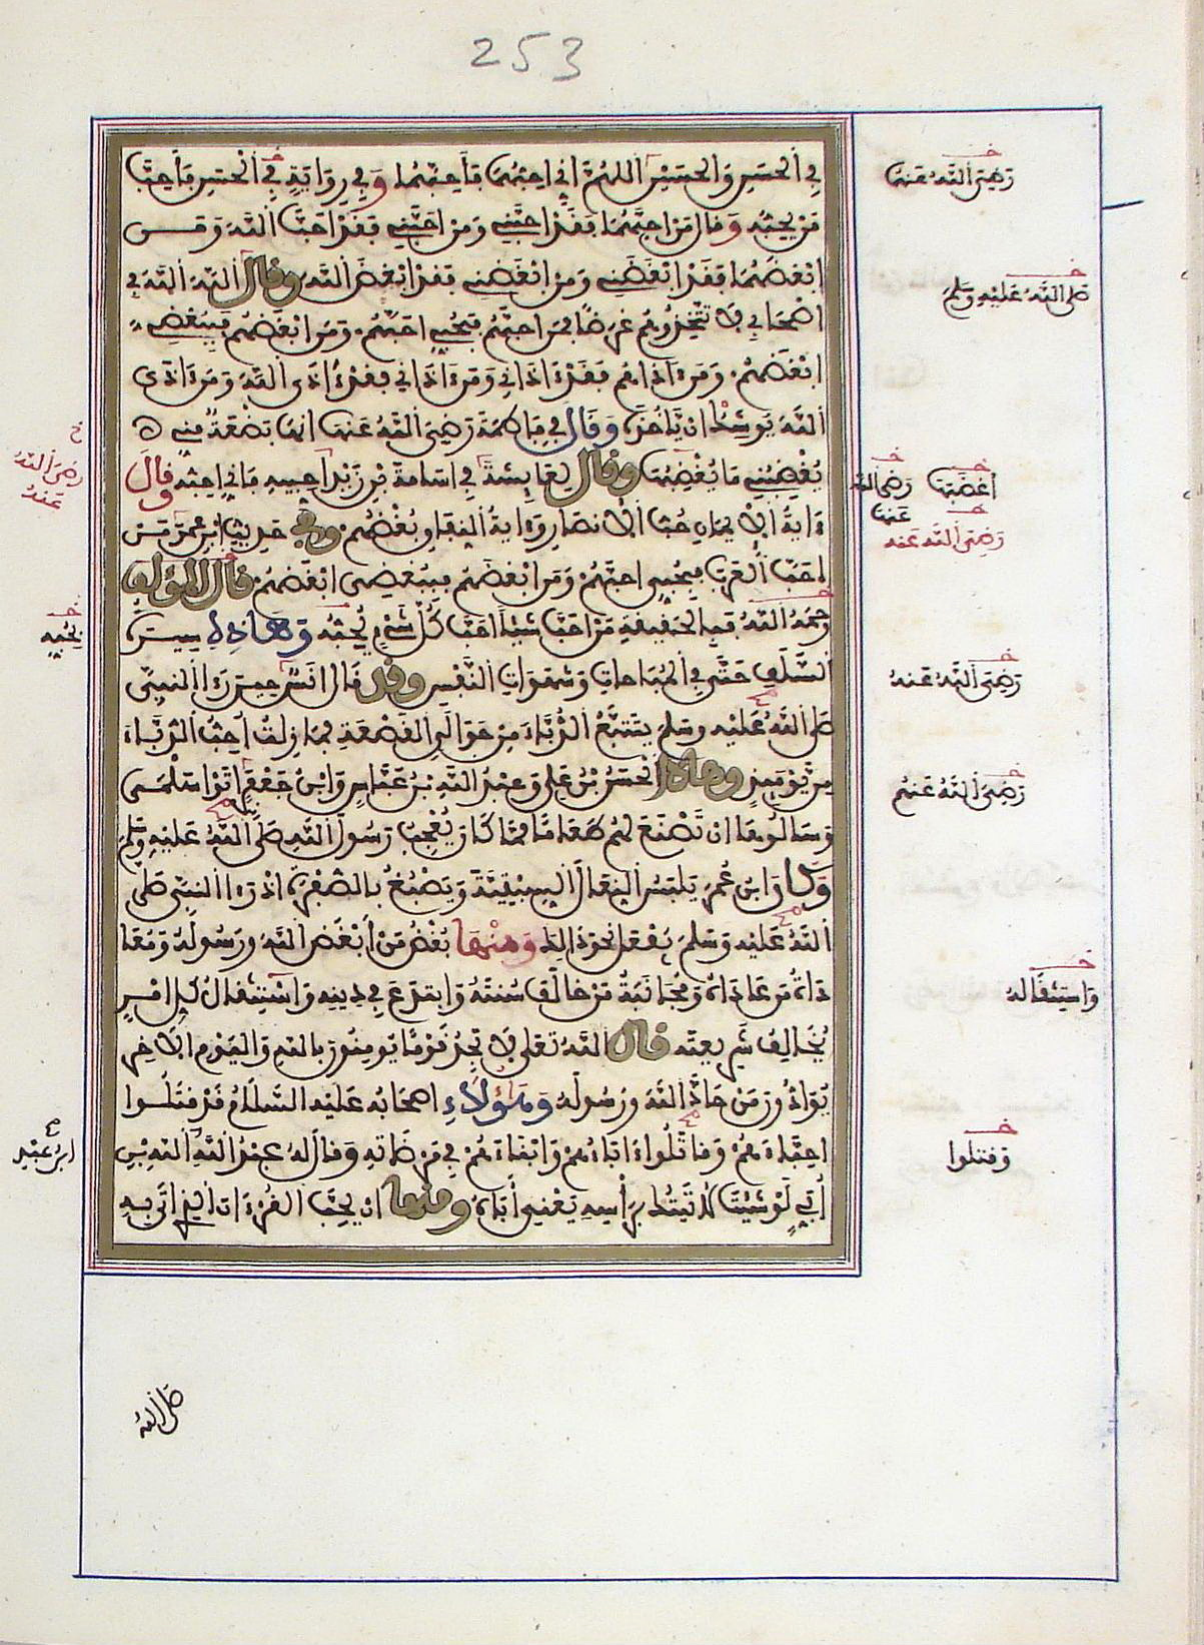 253
في الحسن والحسين اللهم اني احبهما فاحبهما وفي رواية في الحسن فاحب
من يحبه وقال من احبهما فقد احبني ومن احبني فقد احب الله ومن
ابغضهما فقد ابغضني ومن ابغضني فقد ابغض الله وقال الله الله في
اصحابي لا تتخذوهم غرضا فمن احبهم فبحبي احبهم ومن ابغضهم فببغضي
ابغضهم ومن ءاذاهم فقد ءاذاني ومن ءاذاني فقد ءاذى الله ومن ءاذى
الله يوشك ان ياخذه وقال في فاطمة رضي الله عنها انها بضعة مني
يغضبني ما يغضبها وقال لعائشة في اسامة بن زيد احبيه فاني احبه وقال
ءاية الايمان حب الانصار وءاية النفاق بغضهم وفي حديث ابن عمر من
احب العرب فبحبي احبهم ومن ابغضهم فببغضي ابغضهم قال المؤلف
رحمه الله فبالحقيقة من احب شيئا احب كل شيء يحبه وهاذه سيرة
السلف حتى في المباحات وشهوات النفس وقد قال انس حين رءا النبي
صلى الله عليه وسلم يتتبع الدباء من حوالي القصعة فما زلت احب الدباء
من يومئذ وهاذا الحسن بن علي وعبد الله بن عباس وابن جعفر اتوا سلمى
وسالوها ان تصنع لهم طعاما مما كان يعجب رسول الله صلى الله عليه وسلم
وكان ابن عمر يلبس النعال السبتية ويصبغ بالصفرة اذ رءا النبي صلى
الله عليه وسلم يفعل نحو ذالك ومنها بغض من ابغض الله ورسوله ومعا
داة من عاداه ومجانبة من خالف سنته وابتدع في دينه واستثقال كل امر
يخالف شريعته قال الله تعلى لا تجد قوما يومنون بالله واليوم الاخر
يوادون من حاد الله ورسوله وهؤلاء اصحابه عليه السلام قد قتلوا
احباءهم وقاتلوا ءاباءهم وابناءهم في مرضاته وقال له عبد الله بن
ابي لو شيت لاتيتك براسه يعني اباه ومنها ان يحب القرءان الذي اتى به
رضي الله عنهما
صلى الله عليه وسلم
اغضبها
رضي الله عنها
رضي الله عنه
رضي الله عنه
رضي الله عنهم
واستثقاله
وقتلوا
رضي الله عنه
يحبه
صلى الله